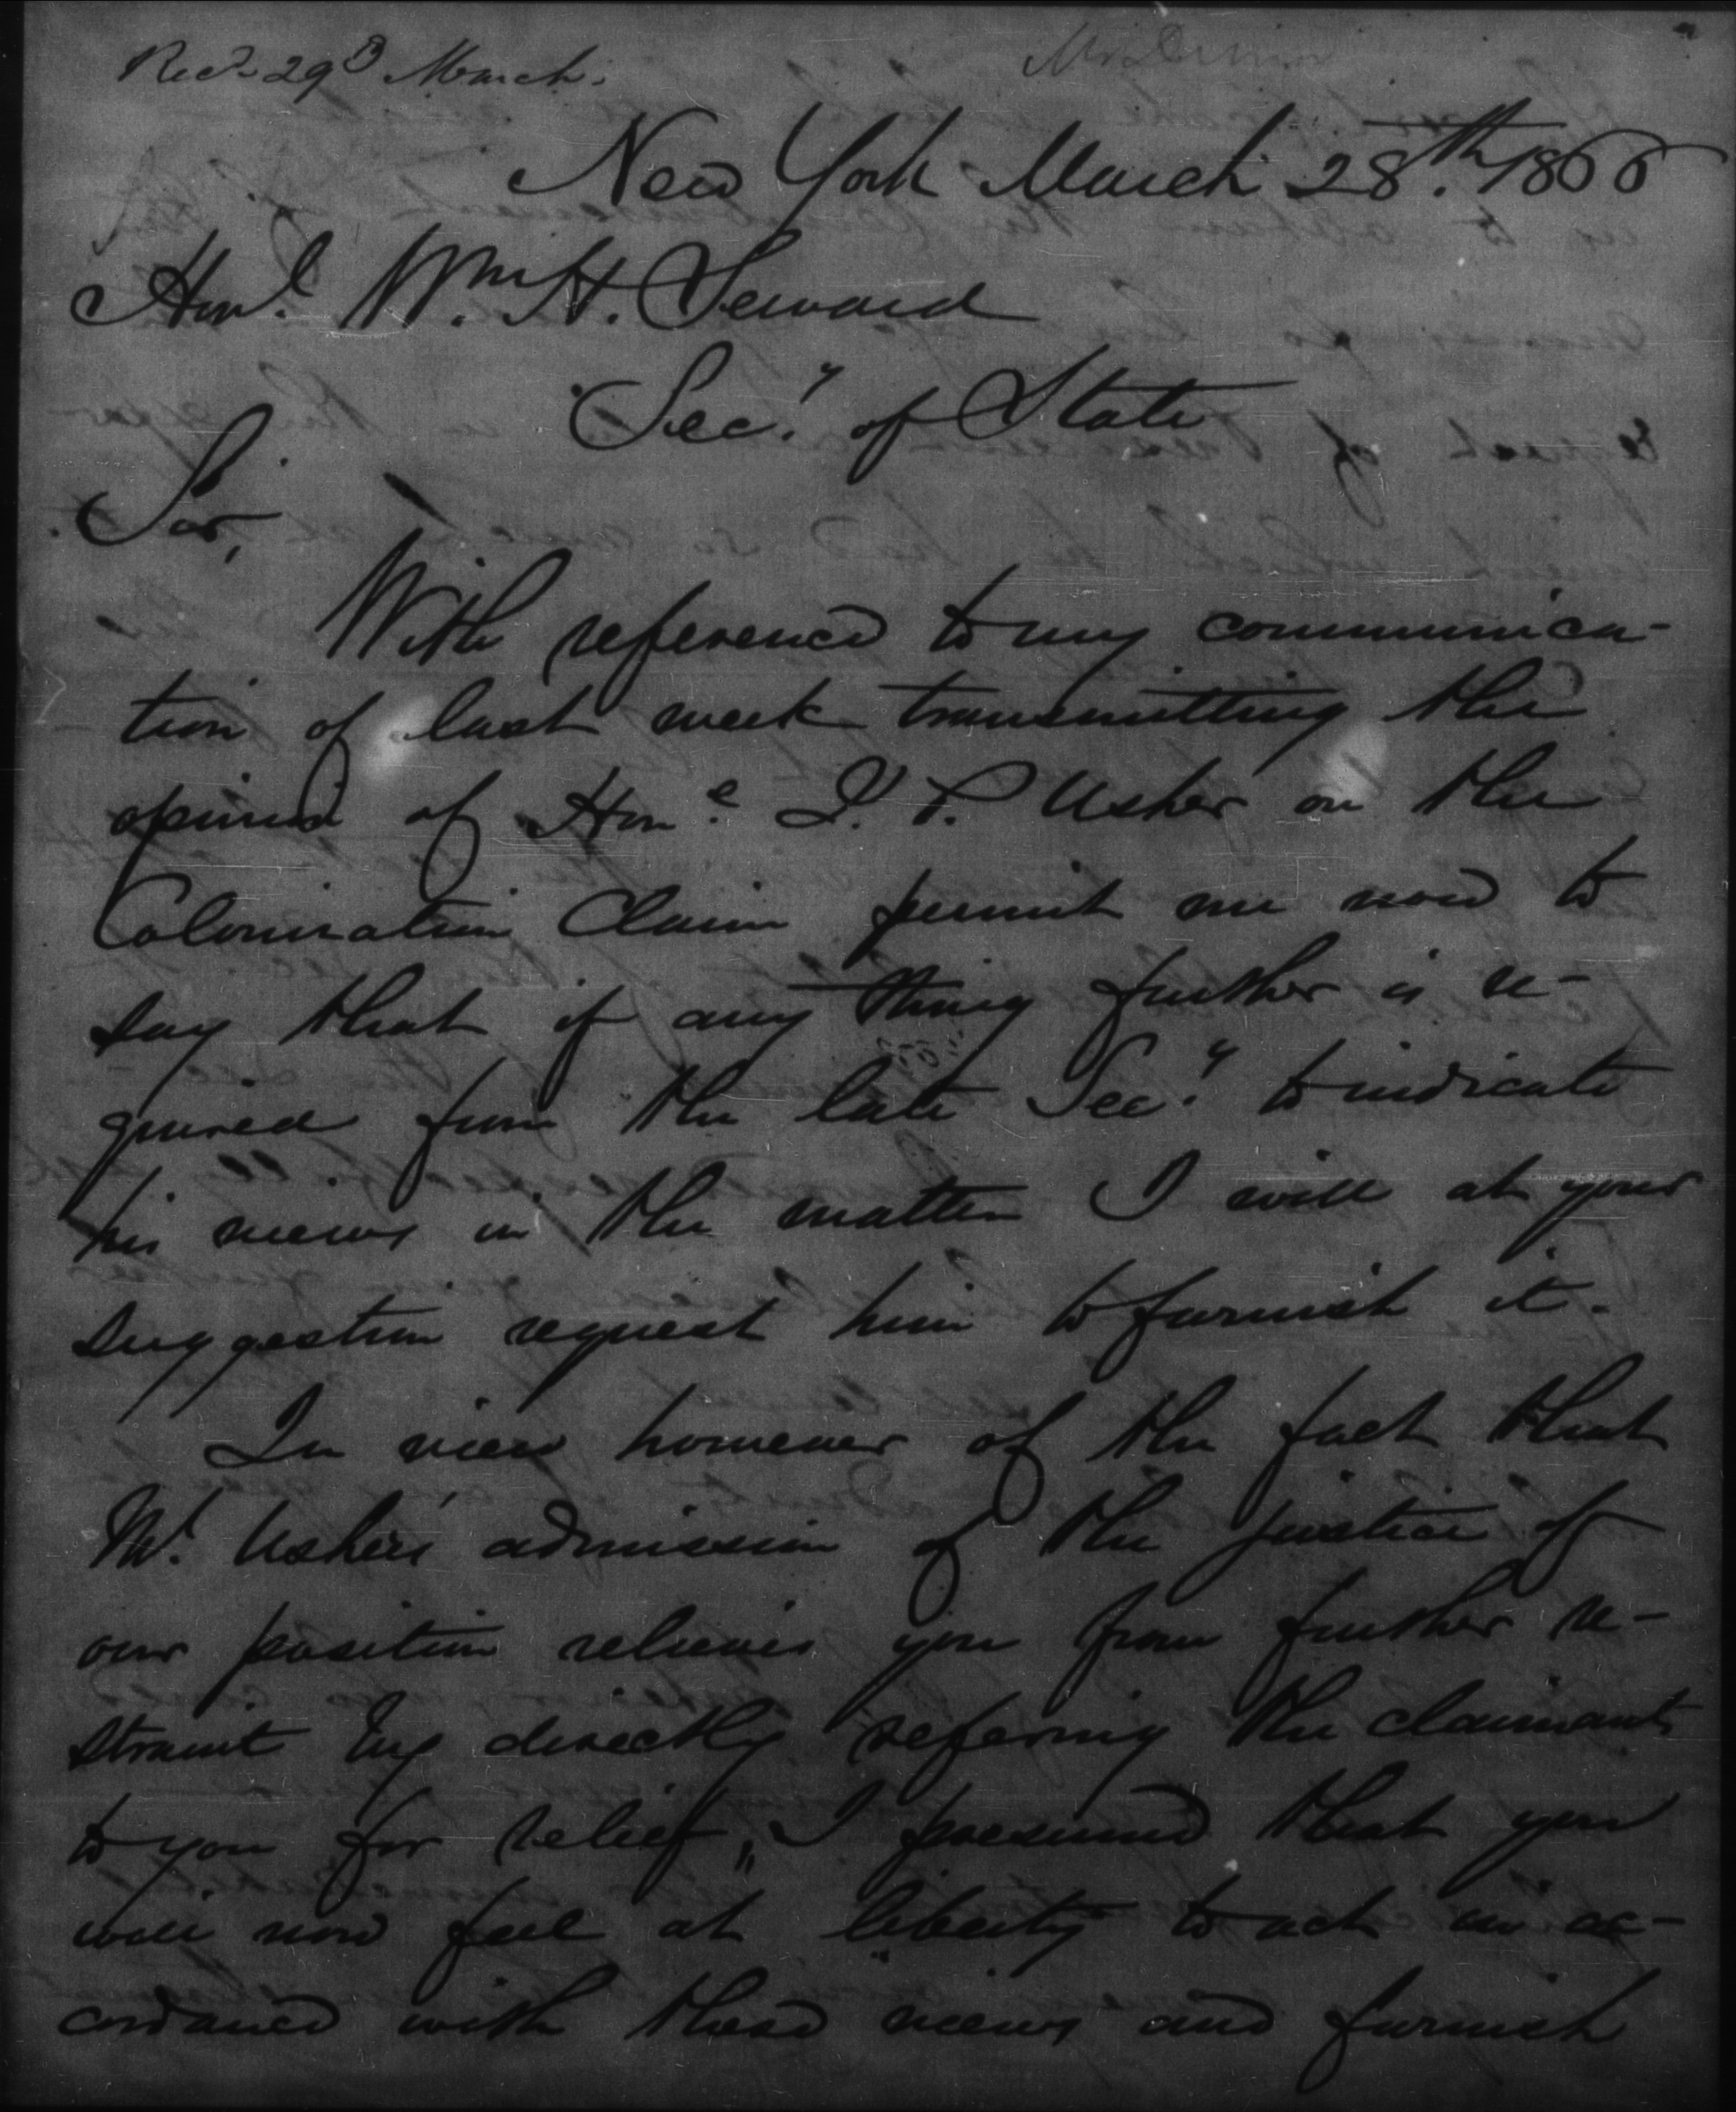 Recd 29th March.
New York March 28th. 1866
Honl. Wm. H. Seward
Secy. of State
Sir,
With reference to my communica-
tion of last week transmitting the
opinion of Hone. J. P. Usher on the
Colonization Claim permit me now to
say that if any thing further is re-
quired from the late Secy. to indicate
his views in the matter I will at your
suggestion request him to furnish it.
In view however of the fact that
Mr. Ushers' admission of the justice of
our position relieves you from further re-
straint by directly refering the claimants
to you for relief, I presume that you
will now feel at liberty to act in ac-
cordance with these views and furnish